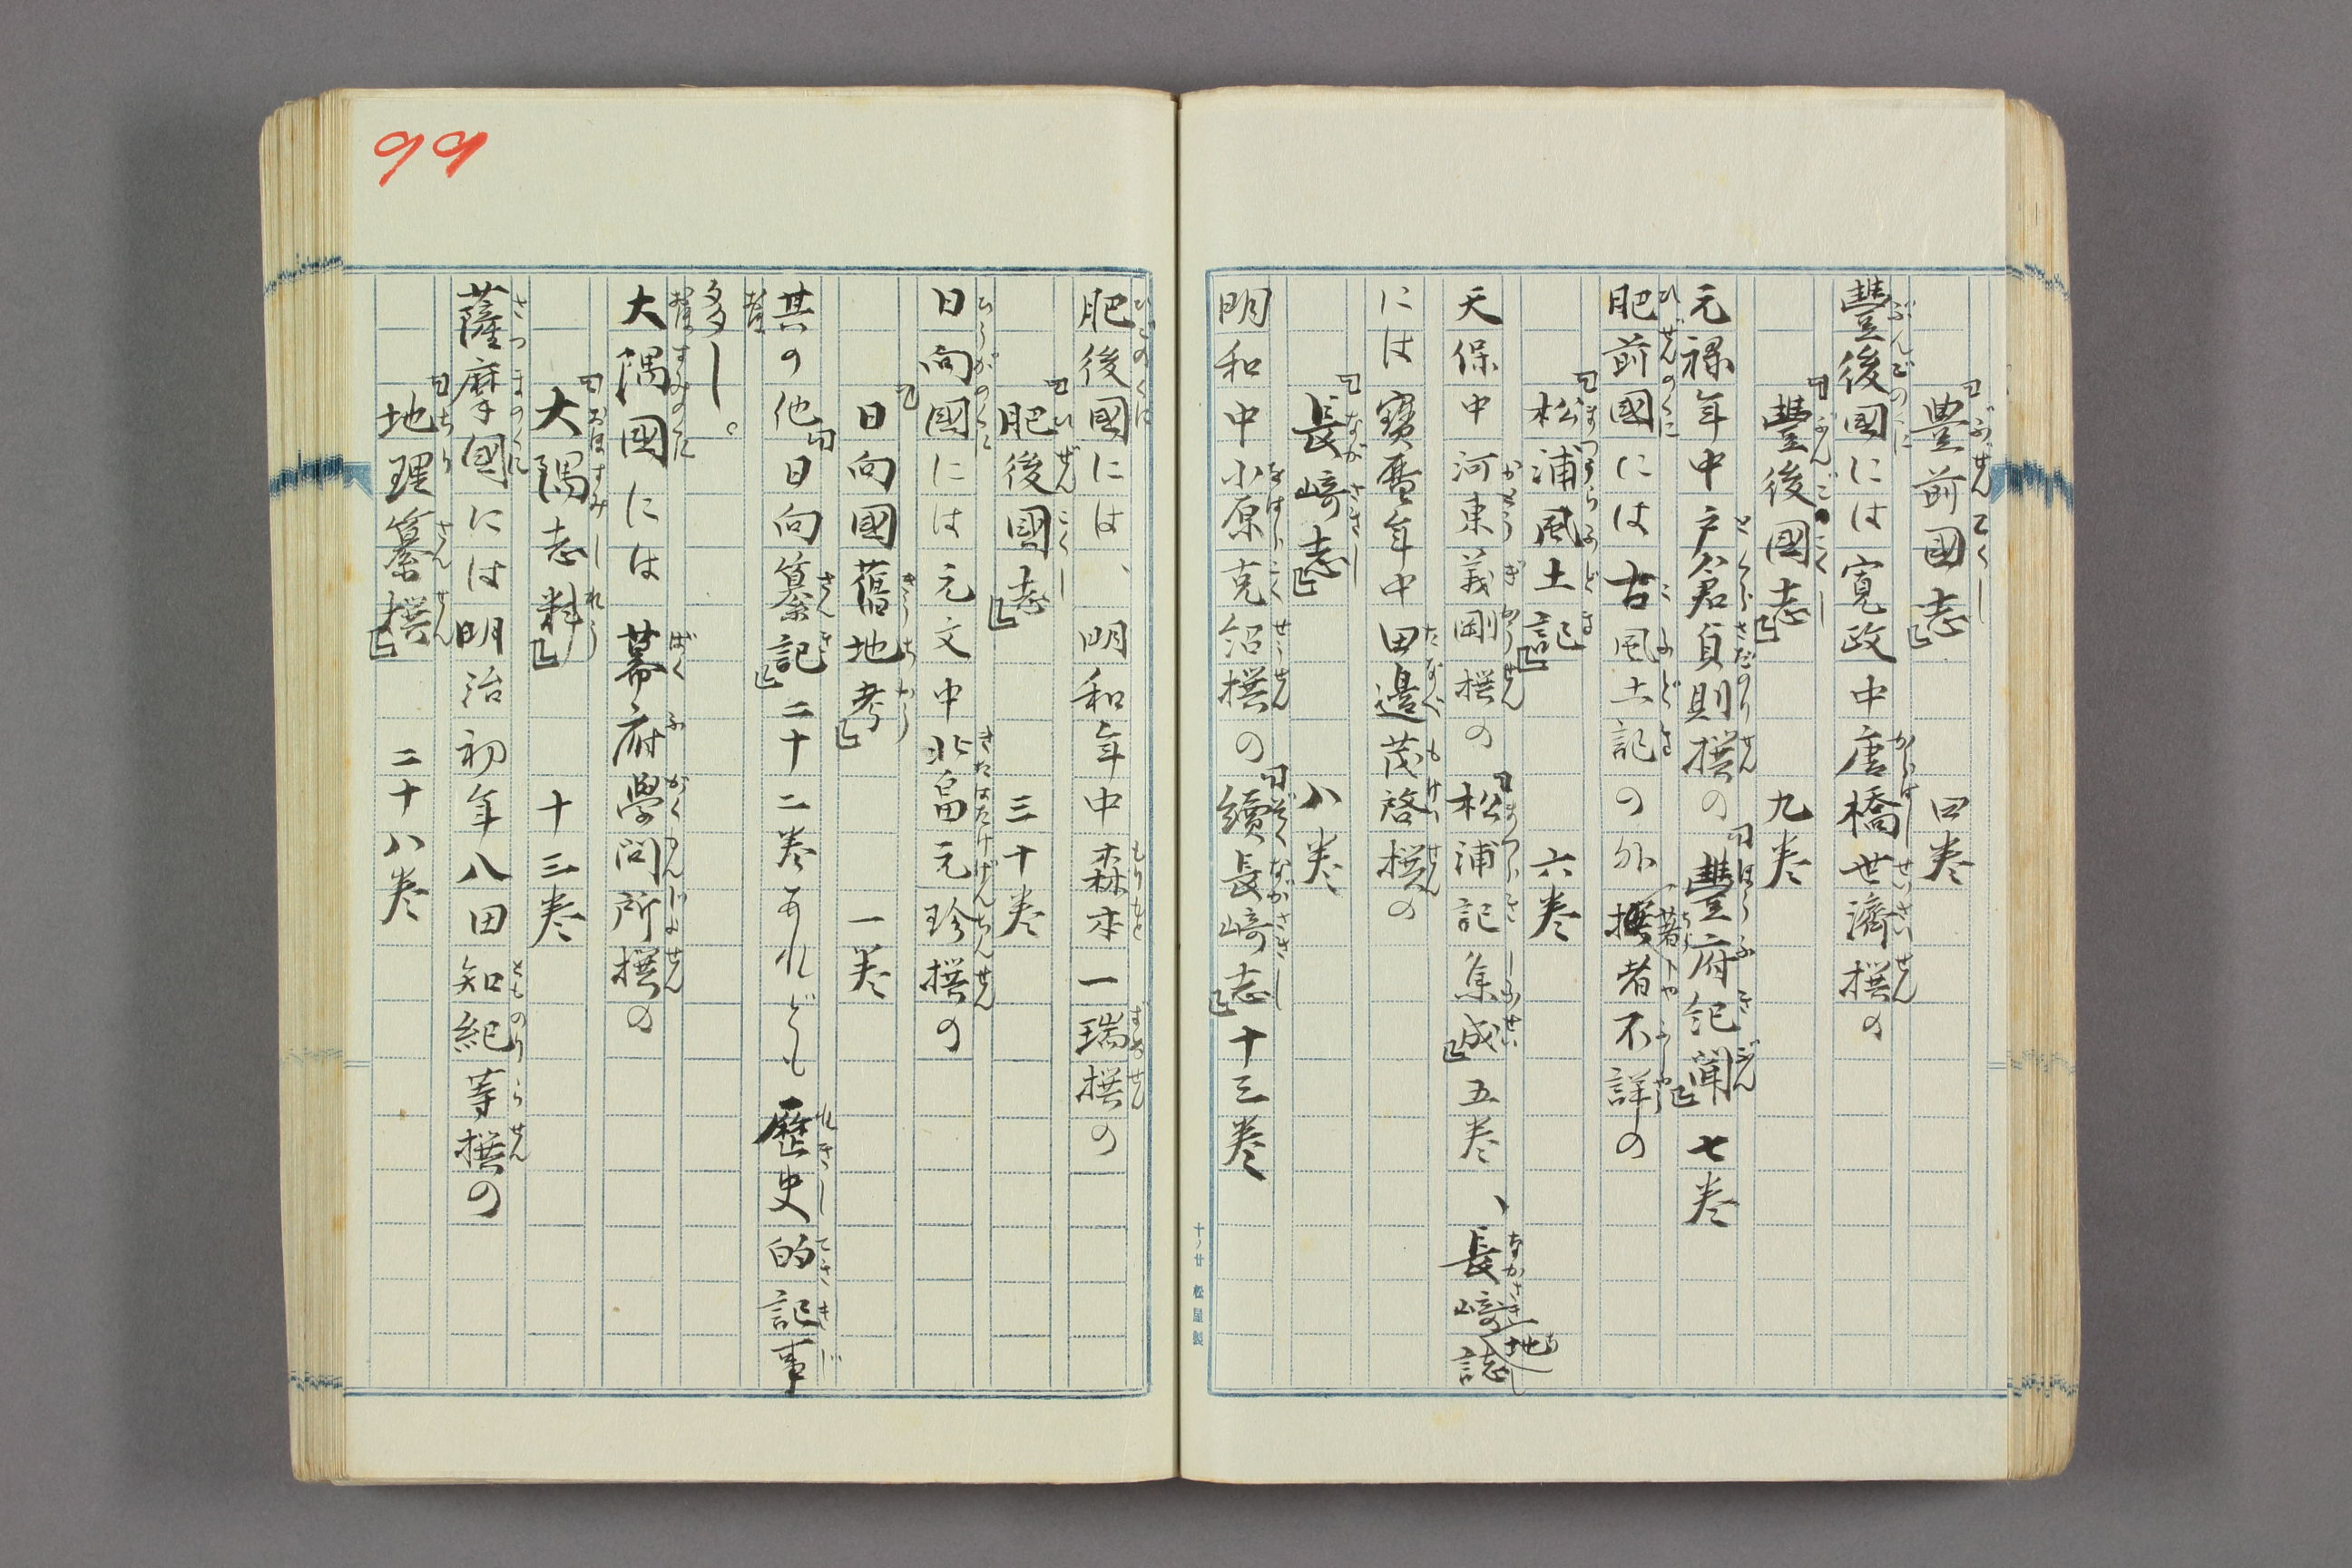 「豊前國志」 四巻
豐後國には寛政中唐橋世濟撰の
「豐後國志」 九巻
元禄年中戸倉貞則撰の「豐府紀聞」七巻
肥前國には古風土記の外著者不詳の
「松浦風土記」 六巻
天保中河東義剛撰の「松浦記集成」五巻、長﨑地誌
には寶暦年中田邉茂啓撰の
「長﨑志」 八巻
明和中小原克紹撰の「續長﨑志」十三巻
十ノ廿 松屋製
99
肥後國には、明和年中森本一瑞撰の
「肥後國志」 三十巻
日向國には元文中北畠元珍撰の
「日向國舊地考」 一巻
其の他「日向纂記」二十二巻あれども歴史的記事
多し。
大隅國には幕府學問所撰の
「大隅志料」 十三巻
薩摩国には明治初年八田知紀等撰の
「地理纂撰」 二十八巻